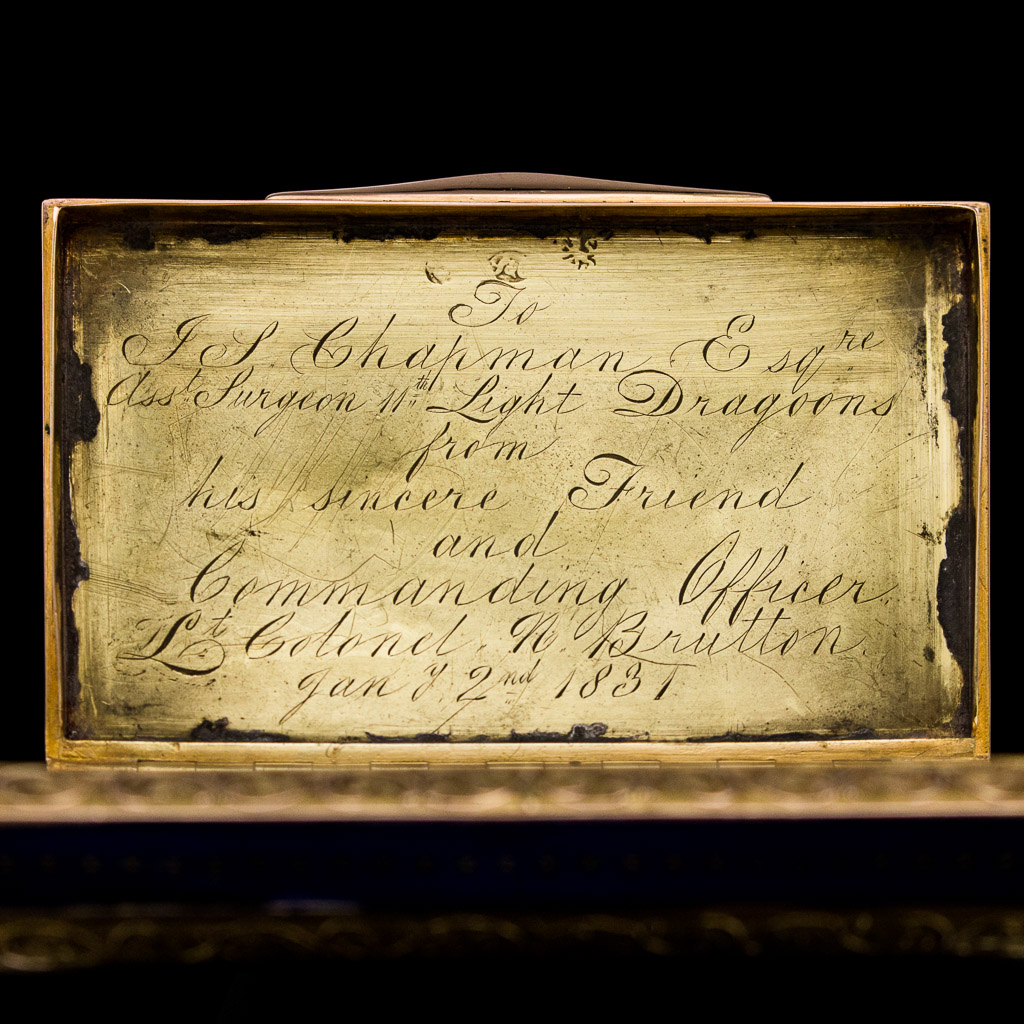 To
J S. Chapman Esqre
Asst. Surgeon 11th Light Dragoons
from
his sincere Friend
and
Commanding Officer.
Lt Colonel. N. Brutton.
Jan y. 2nd 1831